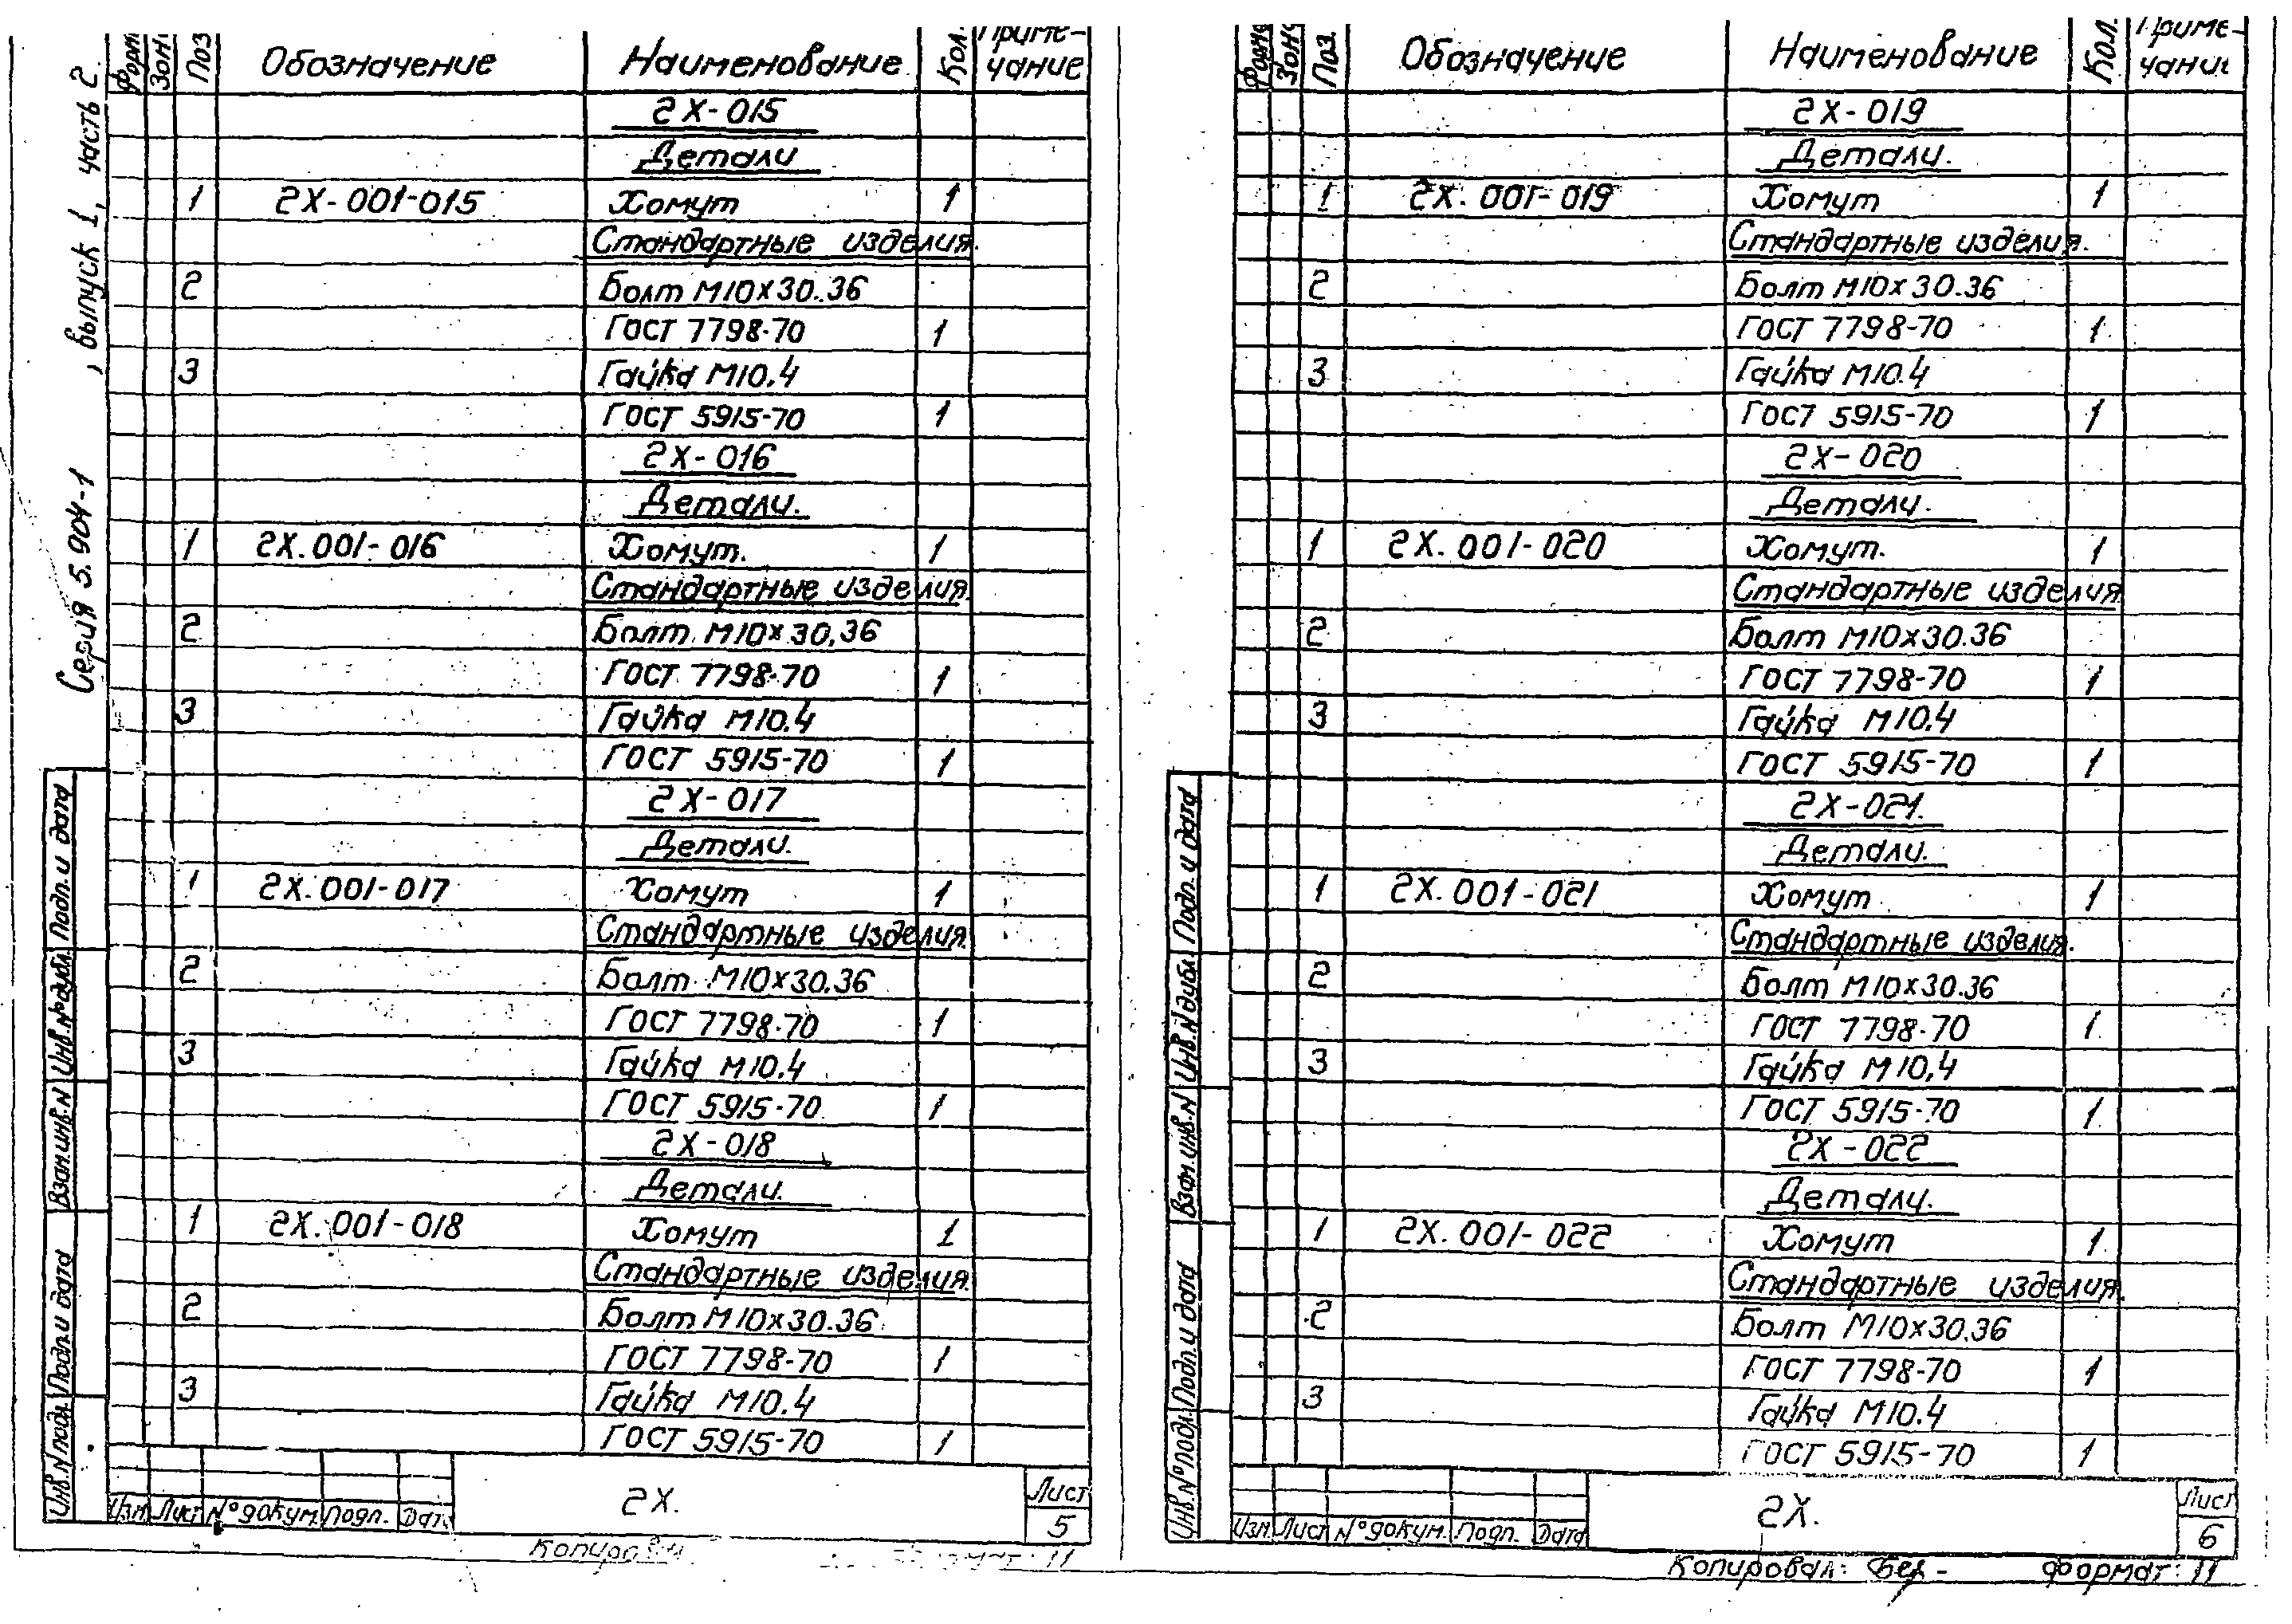 Серия 5.904-1 , выпуск 1, часть 2
Форм Зон Поз Обозначение Наименование Кол. Приме-
чание
2Х-015
Детали
1 2Х-001-015 Хомут 1
Стандартные изделия.
2 Болт М10х30.36
ГОСТ 7798-70 1
3 Гайка М10.4
ГОСТ 5915-70 1
2Х-016
Детали.
1 2Х.001-016 Хомут. 1
Стандартные изделия.
2 Болт М10х30.36
ГОСТ 7798-70 1
3 Гайка М10.4
ГОСТ 5915-70 1
2Х-017
Детали.
1 2Х.001-017 Хомут 1
Стандартные изделия.
2 Болт М10х30.36
ГОСТ 7798-70 1
3 Гайка М10.4
ГОСТ 5915-70 1
2Х-018
Детали.
1 2Х.001-018 Хомут 1
Стандартные изделия.
2 Болт М10х30.36
ГОСТ 7798-70 1
3 Гайка М10.4
ГОСТ 5915-70 1
Инв.№подл. Подп. и дата Взам.инв.№ Инв.№дубл. Подп. и дата
Изм. Лист №докум. Подп. Дата
2Х.
Лист
5
Копировал
11
Форм Зон Поз. Обозначение Наименование Кол. Приме-
чание
2Х-019
Детали.
1 2Х.001-019 Хомут 1
Стандартные изделия.
2 Болт М10х30.36
ГОСТ 7798-70 1
3 Гайка М10.4
ГОСТ 5915-70 1
2Х-020
Детали.
1 2Х.001-020 Хомут. 1
Стандартные изделия
2 Болт М10х30.36
ГОСТ 7798-70 1
3 Гайка М10.4
ГОСТ 5915-70 1
2Х-021.
Детали.
1 2Х.001-021 Хомут 1
Стандартные изделия.
2 Болт М10х30.36
ГОСТ 7798-70 1
3 Гайка М10.4
ГОСТ 5915-70 1
2Х-022
Детали.
1 2Х.001-022 Хомут 1
Стандартные изделия.
2 Болт М10х30.36
ГОСТ 7798-70 1
3 Гайка М10.4
ГОСТ 5915-70 1
Инв.№подл. Подп. и дата Взам.инв.№ Инв.№дубл. Подп. и дата
Изм. Лист №докум. Подп. Дата
2Х.
Лист
6
Копировал: Формат: 11